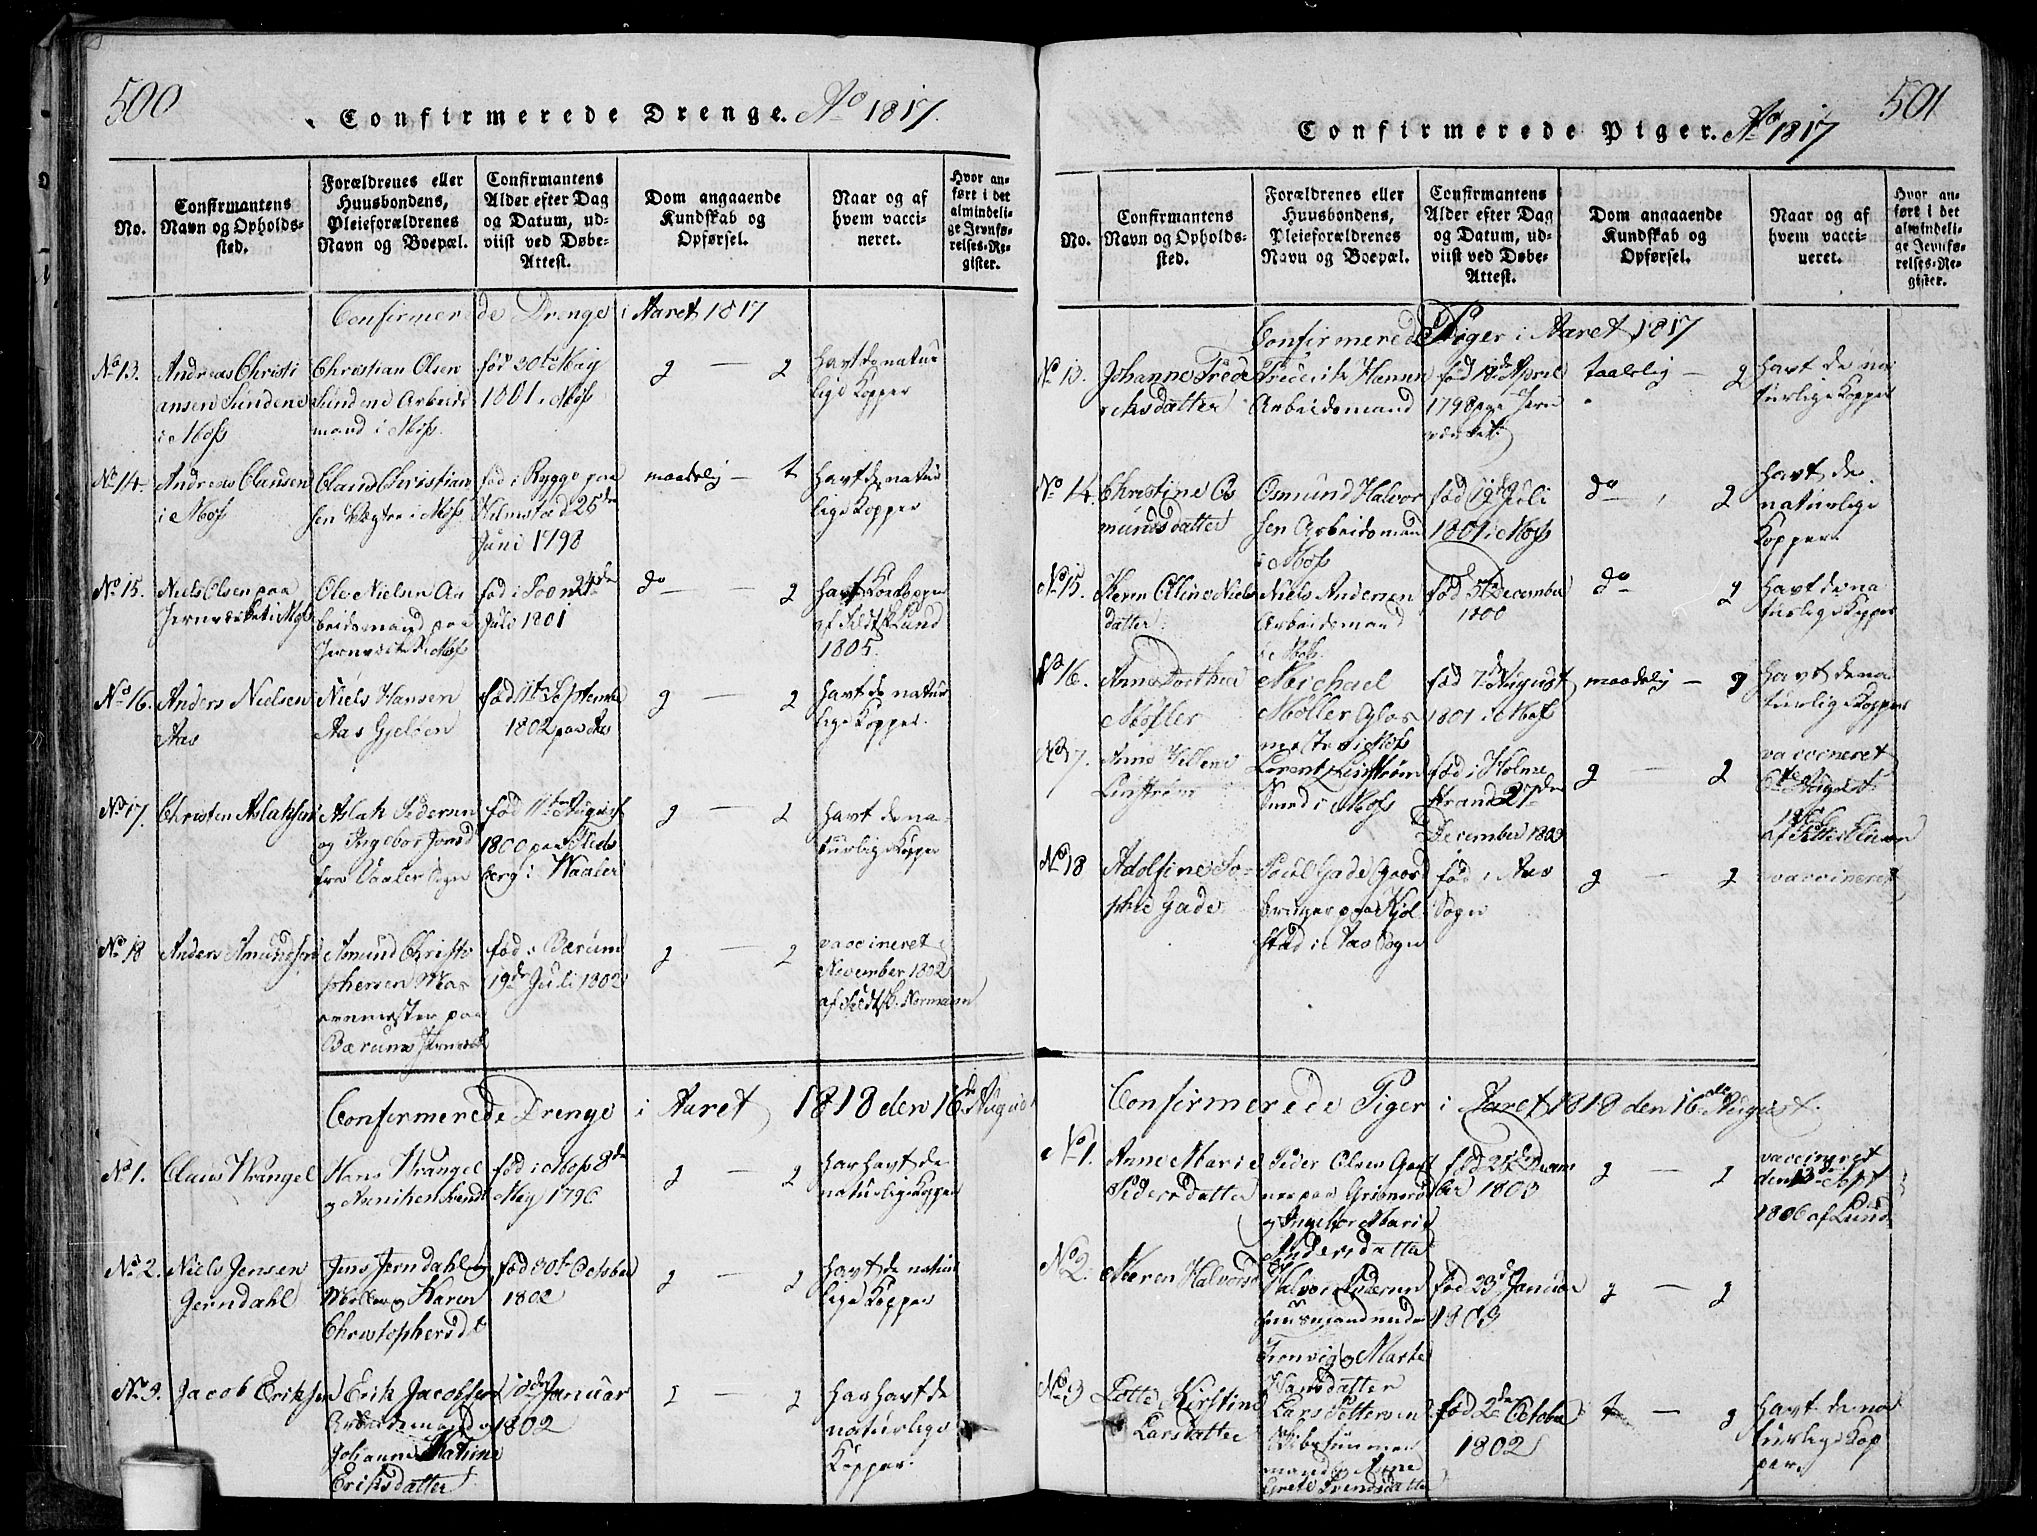 500
Confirmerede Drenge. Ao 1817.
No.
Confirmantens
Navn og Opholds-
sted.
Forældrenes eller
Huusbondens,
Pleieforældrenes
Navn og Boepæl.
Confirmantens
Alder efter Dag
og Datum, ud-
viist ved Døbe-
Attest.
Dom angaaende
Kundskab og
Opførsel.
Naar og af
hvem vacci-
neret.
Hvor an-
ført i det
almindeli-
ge Jevnfø-
relses-Re-
gister.
Confirmerede Drenge i Aaret 1817
No 13.
Andreas Christi
ansen Sundene
i Moss
Christian Olsen
Sundene Arbeids
mand i Moss.
30te May
1801 i Moss
g — g
havt de natur
lige Kopper
No 14.
Andreas Clausen
i Moss
Claus Christian
sen i Moss
fød i Rygge paa
25de
Juni 1798
maadelig — t
havt de natur
lige Kopper
No 15.
Niels Olsen paa
Jernverket i Moss
Ole Nielsen Ar
beidsmand paa
Jernverket i Moss
fød i Soon 24de
Juli 1801
do — g
havt Koekopper
af Lund
1805.
No 16.
Anders Nielsen
Aas
Niels Hansen
Aas
fød 11te Septembr
1802 paa Aas
g — g
havt de natur
lige Kopper.
No 17.
Christen Aslaksen
Aslak Pedersen
og Ingebor Jonsd
fra Vaaler Sogn
fød 11te August
1800 paa
berg i Waaler
g — g
havt de na-
turlige Kopper
No 18
Anders Amundsen
Amund Christo
phersen Mas
ovnmester paa
Bærums Jernverk
fød i Bærum
19de Juli 1802
g — g
vaccineret i
November 1802
af Normann
Confirmerede Drenge i Aaret 1818 den 16de August
No 1.
Claus Wrangel
Hans Wrangel
og
fød i Moss 8de
May 1796
g — g
har havt de
naturlige Kopper
No 2.
Niels Jensen
Jerndahl
Jens Jerndahl
Møller og Karen
Christophersdt
fød 30te October
1802
g — g
havt de natur
lige Kopper
No 3.
Jacob Eriksen
Erik Jacobsen
Arbeidsmand og
Johanne Katrine
Eriksdatter
Januar
1802
g — g
har havt de
naturlige
Kopper.
501
Confirmerede Piger. Ao 1817
No.
Confirmantens
Navn og Opholds-
sted.
Forældrenes eller
Huusbondens,
Pleieforældrenes
Navn og Boepæl.
Confirmantens
Alder efter Dag
og Datum, ud-
viist ved Døbe-
Attest.
Dom angaaende
Kundskab og
Opførsel.
Naar og af
hvem vacci-
neret.
Hvor an-
ført i det
almindeli-
ge Jevnfø-
relses-Re-
gister.
Confirmerede Piger i Aaret 1817
No 13.
Johanne Frede
riksdatter
Frederik Hansen
Arbeidsmand
April
1798 paa Jern
verket.
taalelig — g
havt de na
turlige Kopper
No 14.
Christine Os
mundsdatter
Osmund Halvor
sen Arbeidsmand
i Moss
fød 19de Juli
1801 i Moss
do — g
havt de
naturlige
Kopper.
No 15.
Niels
datter.
Niels Andersen
Arbeidsmand
i Moss.
fød December
1800
do — g
havt de na
turlige Kopper
No 16.
Anne Dorthea
Møller
Michael
Møller Glas
mester i Moss
fød 7de August
1801 i Moss
maadelig — g
havt de na
turlige Kopper
No 17.
Anne Hellene
Linstrøm
Lorentz Linstrøm
Smed i Moss
fød i Holme
strand 27de
December 1803
g — g
vaccineret
No 18
Adolfine So-
phie Gade
Poul Gade Gaard
bruger paa Kjøl
stad i Aas Sogn
fød i Aas
Sogn
g — g
vaccineret
Confirmerede Piger i Aaret 1818 den 16de August.
No 1.
Anne Marie
Pedersdatter
Peder Olsen
paa
og Ingebor Marie
Andersdatter
fød Decem
ber 1803
g — g
vaccineret
den 13de Sept
1806 af Lund
No 2.
Maren Halvorsd
Halvor Andersen
Huusmand under
Tronvig og Marte
Hansdatter
fød 23de Januar
1803
g — g
No 3
Lotte Kirstine
Larsdatter
Lars Pettersen
mand og Anne
Grete Svendsdatter
fød 2de October
1802
t — g
havt de na
turlige Kop
per.